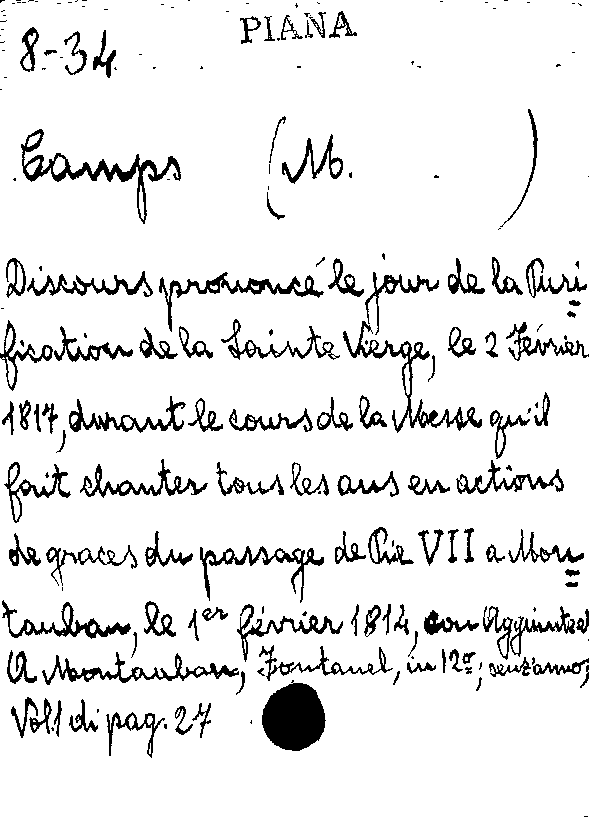 PIANA
8-34
Camps (M. )
Discours prononcé le jour de la Puri
fication de la Sainte Vierge, le 2 Février
1817, durant le cours de la Messe qu'il
fait chanter tous les ans en actions
de graces du passage de Pie VII a Mon
tauban, le 1er février 1814, con Aggiunte
A Montauban, Fontanel, in 12º, senz'anno;
Vol. 1 di pag. 27